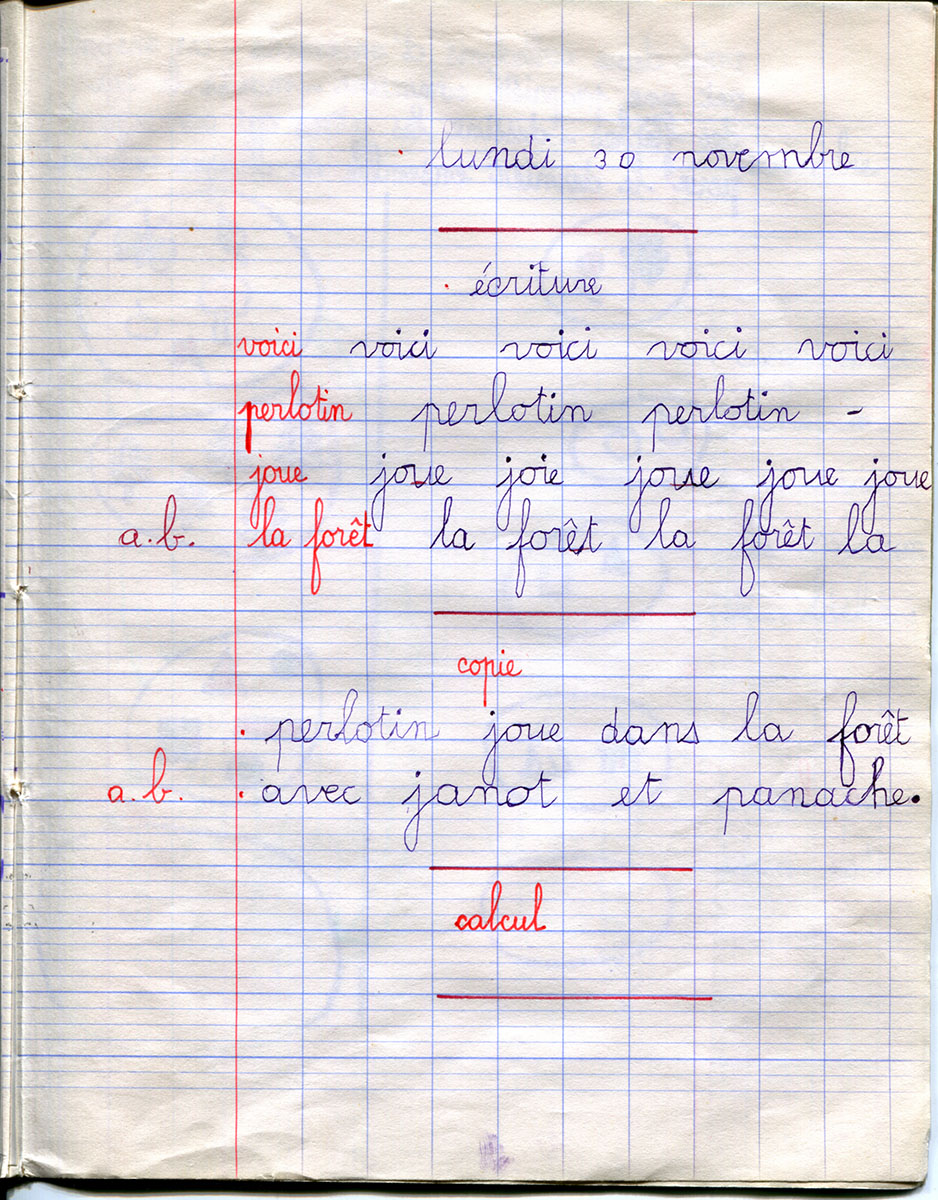 lundi 30 novembre
écriture
voici voici voici voici voici
perlotin perlotin perlotin -
joue joue joie joue joue joue
a.b. la forêt la forêt la forêt la
copie
perlotin joue dans la forêt
a.b. avec janot et panache.
calcul